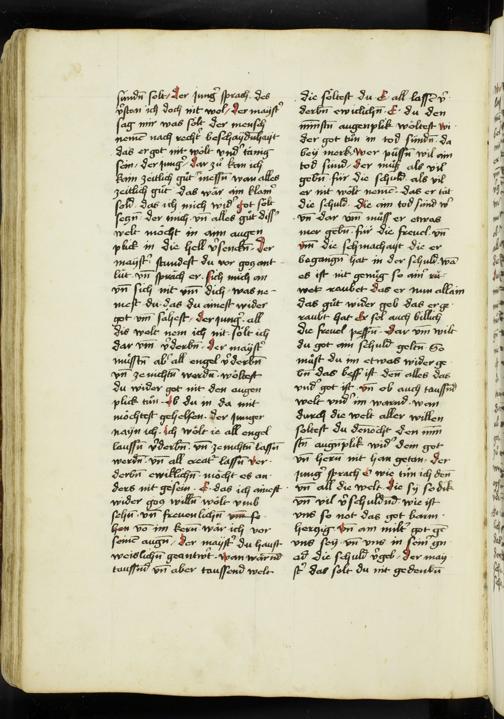 sundn solt / Der jung sprach des
vstan ich doch nit wol / Der mayst
sag mir was solt der mensch
neme nach recht beschaydnhayt
das er got nit wolt vnd tänig
sein · der jung · dar zu kan ich
kain zeitlich gut messn wan alles
zeitlich gut · das wär ain klain
sold das ich mich wid got solt
segn · der mich vn alles gut diss
welt möcht in ainn augen
plick in die hell vsenckn · Der
mayst stundest du vor got ant
lut vn sprach er · sich mich an
vn sich nit vm dich · was ne
mest du · das du ainest wider
got vm sahest · der jung · all
dis welt nem ich nit solt ich
dar vm vderbn · Der mayst
müsstn ab all engel vderbn
vn ze nichtn werdn · woltest
du wider got nit den augen
plick tun · Ob du in da mit
möchtest gehelfen · der junger
nayn ich · ich wolt ie all engel
laussn vderbn · vn ze nichtn lassn
werdn · vn all creat lassn ver
derbn ewiklichn möcht es an
ders nit gesein · E das ich ainest
wider gog willn wolt vmb
sehn · vn freuenlichn vm so
han vo im kern wär ich vor
seinn augn · Der mayst du haust
weislichn geantwt · wan wärnd
taussnd vn aber taussend welt
die soltest du E all lassn v
derbn ewiclichn · E · du den
minstn augenplik woltest wi
der got tun in tod sundn · da
bey merk · wer püssn wil ain
tod sund · der muss als vil
gebn für die schuld als vil
er nit wolt neme · das er tät
die schuld · Die ain tod sund w
vn dar vm müss er etwas
mer gebn · für die freuel · vn
vm die schmachayt die er
begangn hat in der schuld · wa
es ist nit genug so ain rü
wet raubet das er nun allain
das gut wider geb das er ge
raubt hat Er sol auch billich
die freuel pessn · Dar vm wilt
du got ain schuld geltn So
müst du im etwas widerge
bn das bess ist denn alles das
vnd got ist · vn ob auch taussnd
welt vnd im warnd · wan
durch die welt aller willen
soltest du dennocht den min
stn augnplik wid dem got
vn hern nit han getan · der
jung sprach E wie tun ich den
vn all die welt · die sy so dik
vn vil vschuldnd wie ist
vns so not das got barm
hertzig vn ain milt got ge
vns sey · vn vns in seinr gn
ad die schuld vgeb · der may
st das solt du nit gedenkn